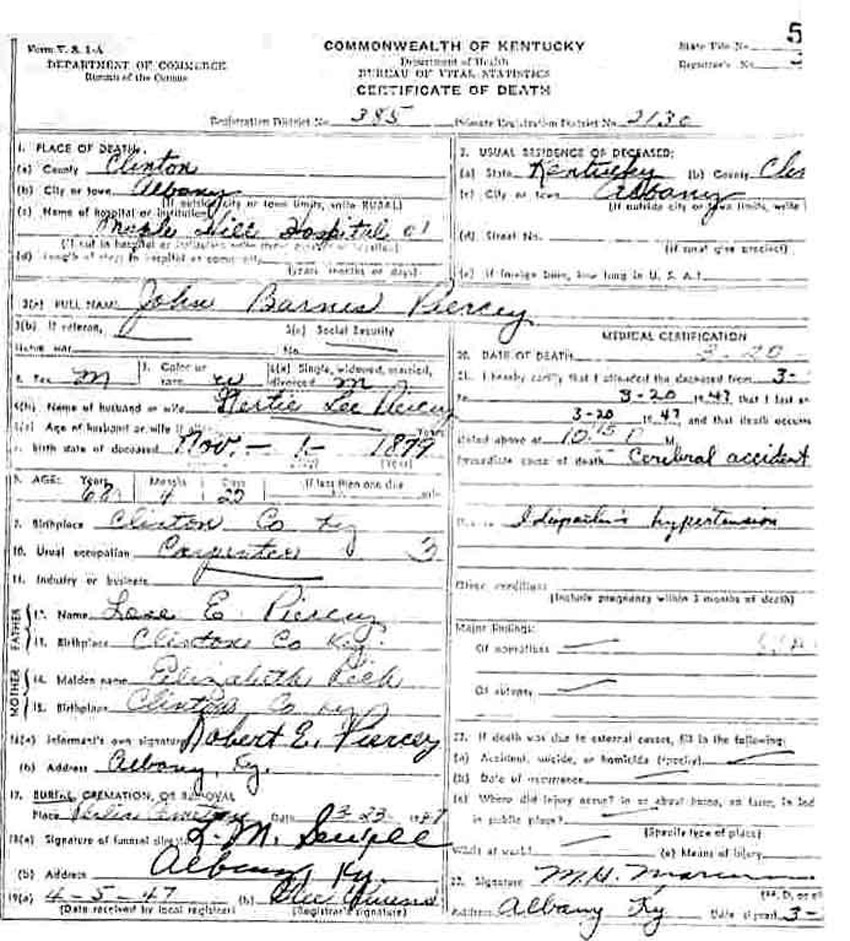 5
Form V. S. 1-A
DEPARTMENT OF COMMERCE
Bureau of the Census
COMMONWEALTH OF KENTUCKY
Department of Health
BUREAU OF VITAL STATISTICS
CERTIFICATE OF DEATH
State File No.
Registrar's No.
Registration District No. 385 Primary Registration District No. 2130
1. PLACE OF DEATH:
(a) County Clinton
(b) City or town Albany
(If outside city or town limits, write RURAL)
(c) Name of hospital or institution:
Maple Hill Hospital
(If not in hospital or institution write street number or location)
(d) Length of stay: In hospital or community
(years months or days)
2. USUAL RESIDENCE OF DECEASED:
(a) State Kentucky (b) County Clin
(c) City or town Albany
(If outside city or town limits, write
(d) Street No.
(If rural give precinct)
(e) If foreign born, how long in U. S. A.?
3(a) FULL NAME John Barnes Piercey
3(b) If veteran, 3(c) Social Security
Name war No.
4. Sex M 5. Color or race W 6(a) Single, widowed, married, divorced M
6(b) Name of husband or wife Lee Piercey
6(c) Age of husband or wife if alive Years
7. Birth date of deceased Nov. - 1 - 1879
(Year)
8. AGE: Years Months Days If less than one day
4 min.
9. Birthplace Clinton Co Ky
10. Usual occupation Carpenter 3
11. Industry or business
FATHER
12. Name E. Piercey
13. Birthplace Clinton Co Ky.
MOTHER
14. Maiden name Elizabeth
15. Birthplace Clinton Co Ky
16(a) Informant's own signature Robert E. Piercey
(b) Address Albany, Ky.
17. BURIAL, CREMATION, OR REMOVAL
Place Date 3-23 1947
18(a) Signature of funeral director L. M.
(b) Address Albany, Ky.
19(a) 4-5-47 (b)
(Date received by local registrar) (Registrar's signature)
MEDICAL CERTIFICATION
20. DATE OF DEATH 3-20-
21. I hereby certify that I attended the deceased from 3-
to 3-20 1947, that I last
3-20 1947, and that death occurre
stated above at 10:15 P M.
Immediate cause of death Cerebral accident
hypertension
Other conditions
(Include pregnancy within 3 months of death)
Major findings:
Of operations
Of autopsy
22. If death was due to external causes, fill in the following:
(a) Accident, suicide, or homicide (specify)
(b) Date of occurrence
(c) Where did injury occur? in or about home, on farm, in ind
in public place?
(Specify type of place)
While at work? (e) Means of injury
23. Signature M.H.
(M. D. or
Address Albany Ky Date signed 3-